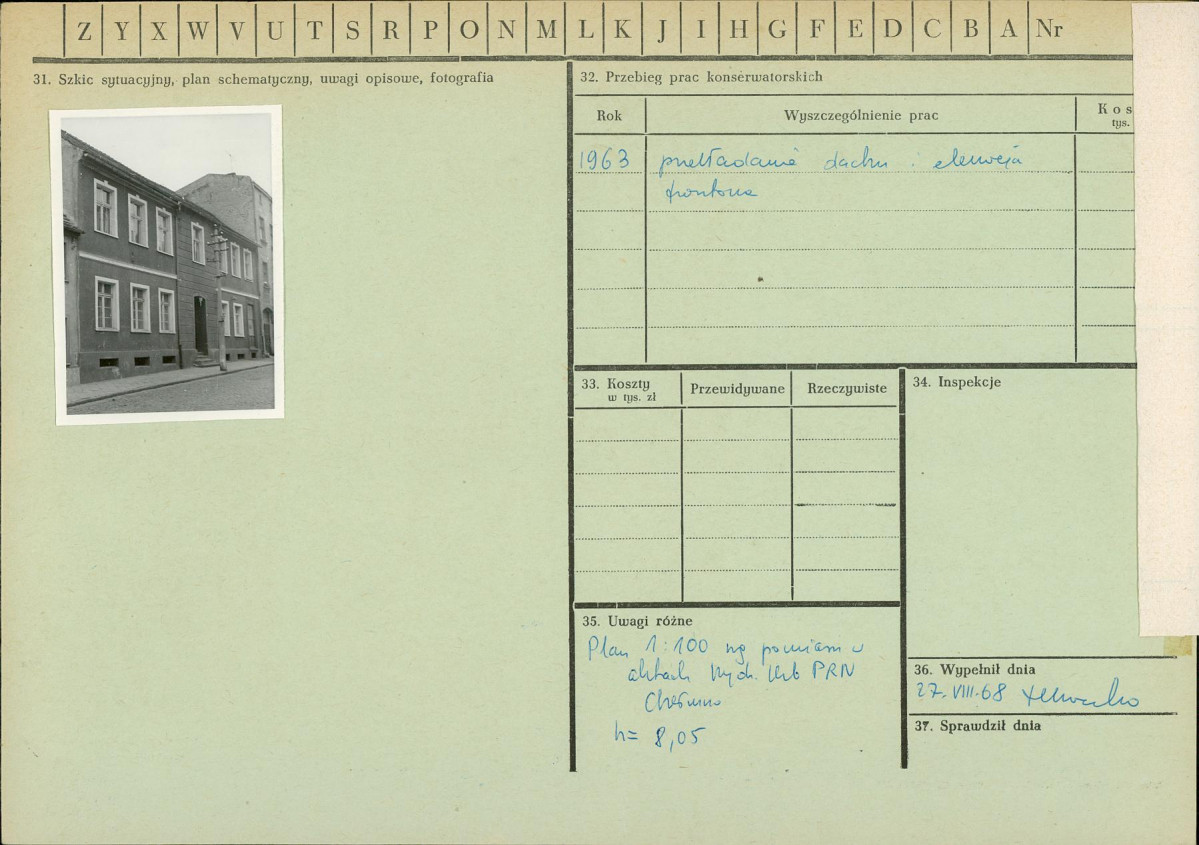 Z Y X W V U T S R P O N M L K J I H G F E D C B A Nr
31. Szkic sytuacyjny, plan schematyczny, uwagi opisowe, fotografia
32. Przebieg prac konserwatorskich
Rok
Wyszczególnienie prac
Kos
tys.
1963 przekładanie dachu i elewacja
frontowa
33. Koszty
w tys. zł
Przewidywane
Rzeczywiste
34. Inspekcje
35. Uwagi różne
Plan 1:100 wg pomiaru w
aktach Wydz. Kult PRN
Chełmno
h= 8,05
36. Wypełnił dnia
27.VIII.68
37. Sprawdził dnia